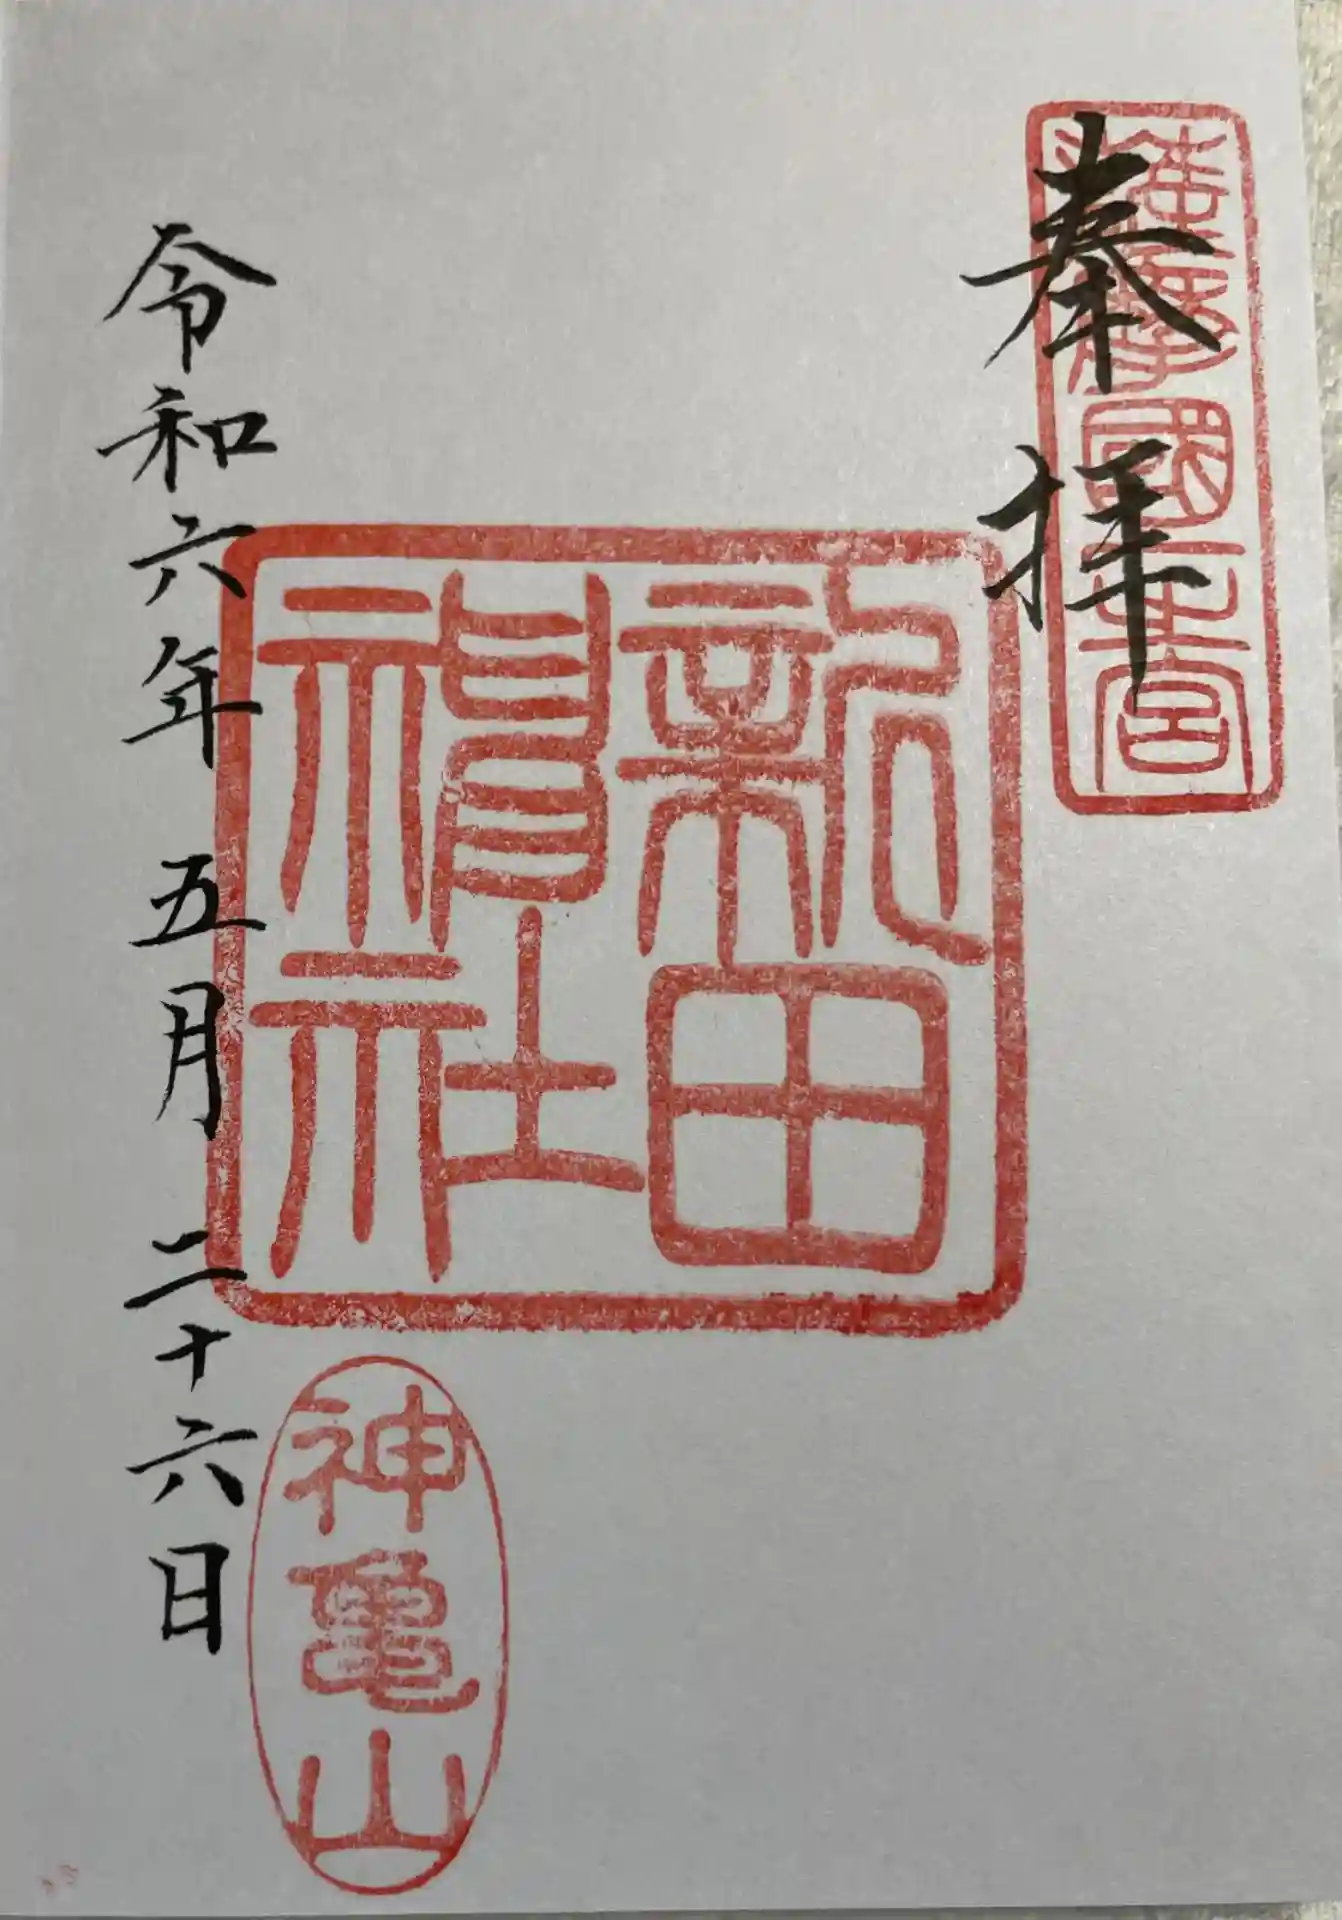 奉拝
薩摩國一宮
新田
神社
神亀山
令和六年 五月 二十六日